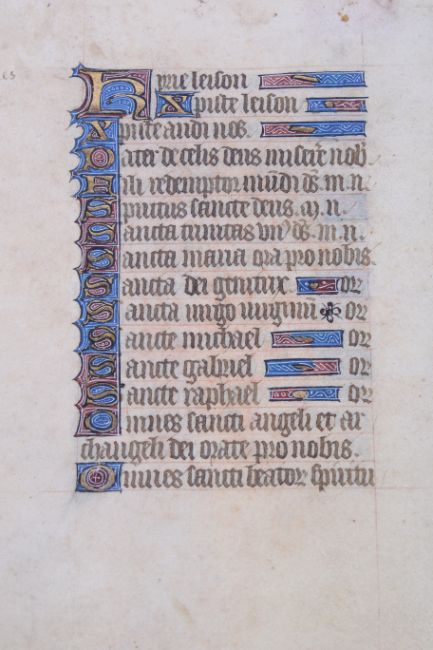 Kyrie leison
Xpiste leison
Xpiste audi nos.
Pater de celis deus misere nob.
Fili redemptor mundi ds. m. n.
Spiritus sancte deus. m. n.
Sancta trinitas vn9 ds. m. n.
Sancta maria ora pro nobis.
Sancta dei genitrix or
Sancta uirgo uirginum or
Sancte michael or
Sancte gabriel or
Sancte raphael or
Omnes sancti angeli et ar
changeli dei orate pro nobis.
Omnes sancti beator spiritu